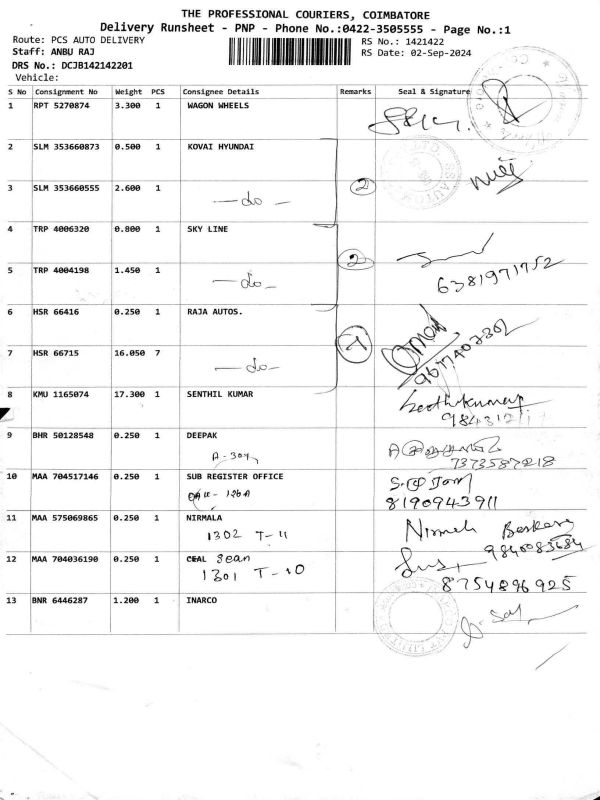 THE PROFESSIONAL COURIERS, COIMBATORE
Delivery Runsheet - PNP - Phone No.:0422-3505555 - Page No.:1
Route: PCS AUTO DELIVERY RS No.: 1421422
Staff: ANBU RAJ RS Date: 02-Sep-2024
DRS No.: DCJB142142201
Vehicle:
S No Consignment No Weight PCS Consignee Details Remarks Seal & Signature
1 RPT 5270874 3.300 1 WAGON WHEELS
2 SLM 353660873 0.500 1 KOVAI HYUNDAI
3 SLM 353660555 2.600 1 —do— 2
4 TRP 4006320 0.800 1 SKY LINE
5 TRP 4004198 1.450 1 —do— 2 6381971752
6 HSR 66416 0.250 1 RAJA AUTOS.
7 HSR 66715 16.050 7 —do—
8 KMU 1165074 17.300 1 SENTHIL KUMAR Senthilkumar
9 BHR 50128548 0.250 1 DEEPAK
A-304 7373587218
10 MAA 704517146 0.250 1 SUB REGISTER OFFICE
8190943911
11 MAA 575069865 0.250 1 NIRMALA Nirmala
1302 T-11 9840083684
12 MAA 704036190 0.250 1 CEAL Sean
1301 T-10 8754896925
13 BNR 6446287 1.200 1 INARCO